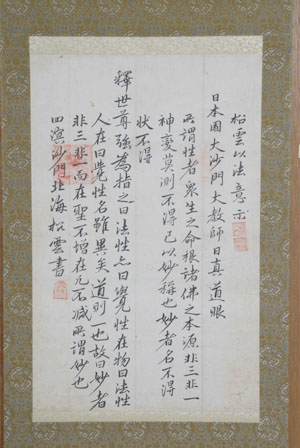 松雲以法意示
日本國大沙門大教師日真道眼
所謂性者衆生之命根諸佛之本源非三非一
神變莫測不得已以妙稱也妙者名不得
狀不得
釋世尊強為指之曰法性亦曰覺性在物曰法性
人在曰覺性名雖異矣道則一也故曰妙者
非三非一而在聖不增在凡不減所謂妙也
四溟沙門北海松雲書